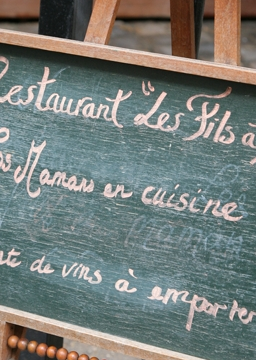 Restaurant "Les Fils à
Mamans en cuisine
te de vins à emporter